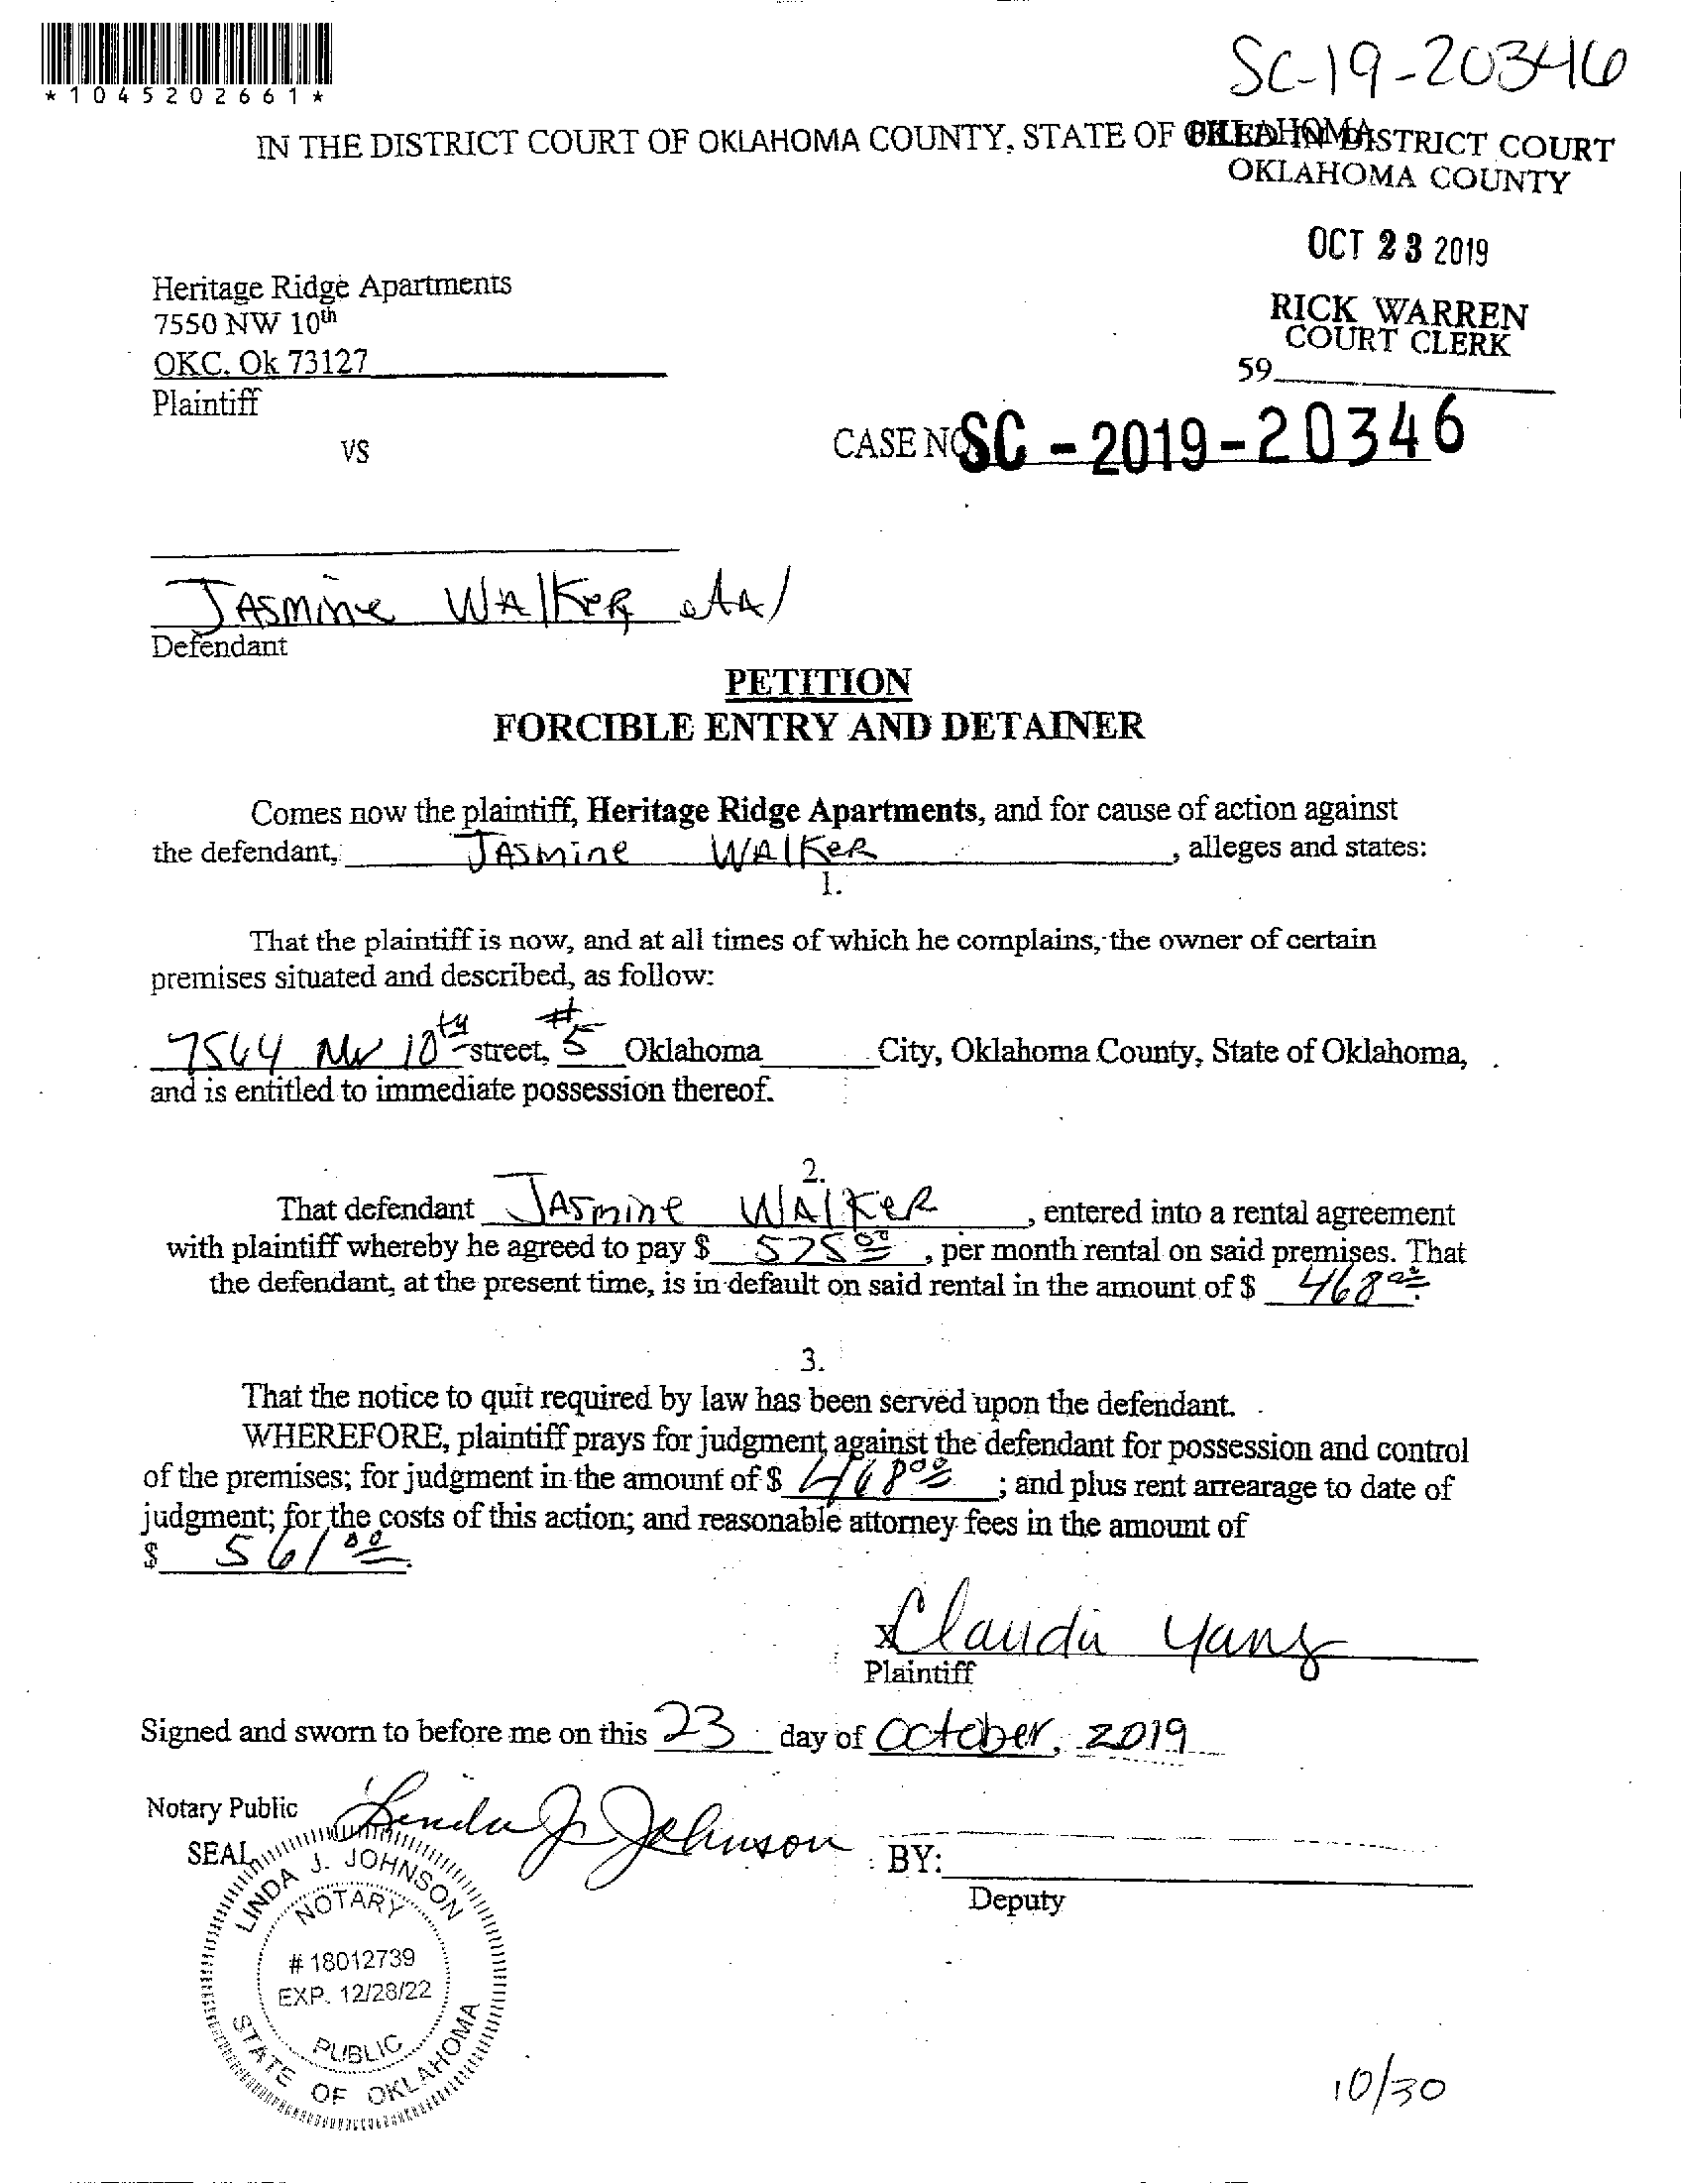 *1045202661*
SC-19-20346
IN THE DISTRICT COURT OF OKLAHOMA COUNTY, STATE OF OKLAHOMA
FILED IN DISTRICT COURT
OKLAHOMA COUNTY
OCT 23 2019
RICK WARREN
COURT CLERK
59
Heritage Ridge Apartments
7550 NW 10th
OKC. Ok 73127
Plaintiff
VS
CASE NO SC - 2019 - 20346
JASMINE WALKER etAl
Defendant
PETITION
FORCIBLE ENTRY AND DETAINER
Comes now the plaintiff, Heritage Ridge Apartments, and for cause of action against
the defendant, JASMINE WALKER, alleges and states:
1.
That the plaintiff is now, and at all times of which he complains, the owner of certain
premises situated and described, as follow:
7564 NW 10th street, #5 Oklahoma City, Oklahoma County, State of Oklahoma,
and is entitled to immediate possession thereof.
2.
That defendant JASMINE WALKER, entered into a rental agreement
with plaintiff whereby he agreed to pay $ 525 00, per month rental on said premises. That
the defendant, at the present time, is in default on said rental in the amount of $ 468 00.
3.
That the notice to quit required by law has been served upon the defendant.
WHEREFORE, plaintiff prays for judgment against the defendant for possession and control
of the premises; for judgment in the amount of $ 468 00; and plus rent arrearage to date of
judgment; for the costs of this action; and reasonable attorney fees in the amount of
$ 561 00.
x Claudia Yang
Plaintiff
Signed and sworn to before me on this 23 day of October, 2019
Notary Public Linda J. Johnson
SEAL
BY:
Deputy
LINDA J. JOHNSON
NOTARY
# 18012739
EXP. 12/28/22
PUBLIC
STATE OF OKLAHOMA
10/30